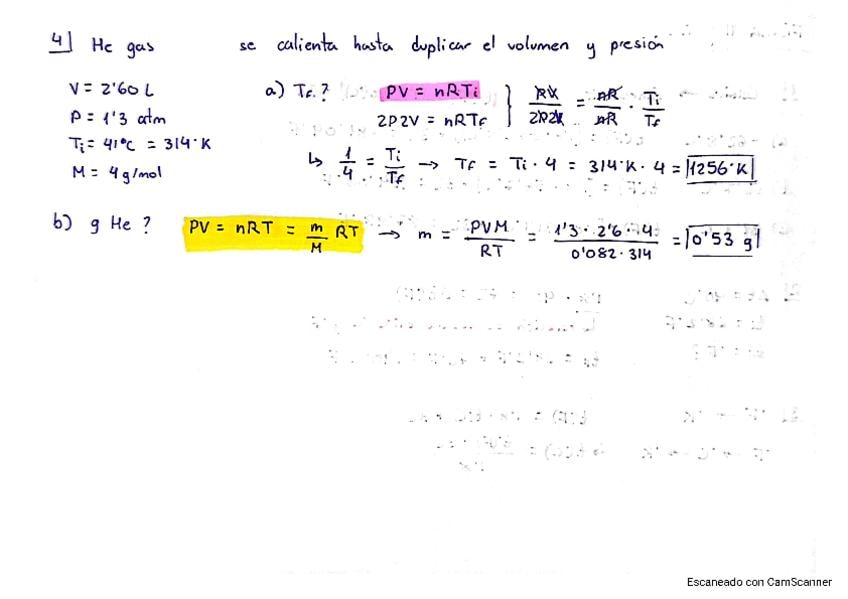 4| He gas se calienta hasta duplicar el volumen y presión
V = 2'60 L
P = 1'3 atm
Ti = 41ºC = 314ºK
M = 4 g/mol
a) Tf ? PV = nRTi
2P2V = nRTf } PV/2P2V = nR/nR · Ti/Tf
↳ 1/4 = Ti/Tf → Tf = Ti · 4 = 314ºK · 4 = |1256ºK|
b) g He ? PV = nRT = m/M RT → m = PVM/RT = 1'3 · 2'6 · 4/0'082 · 314 = |0'53 g|
Escaneado con CamScanner